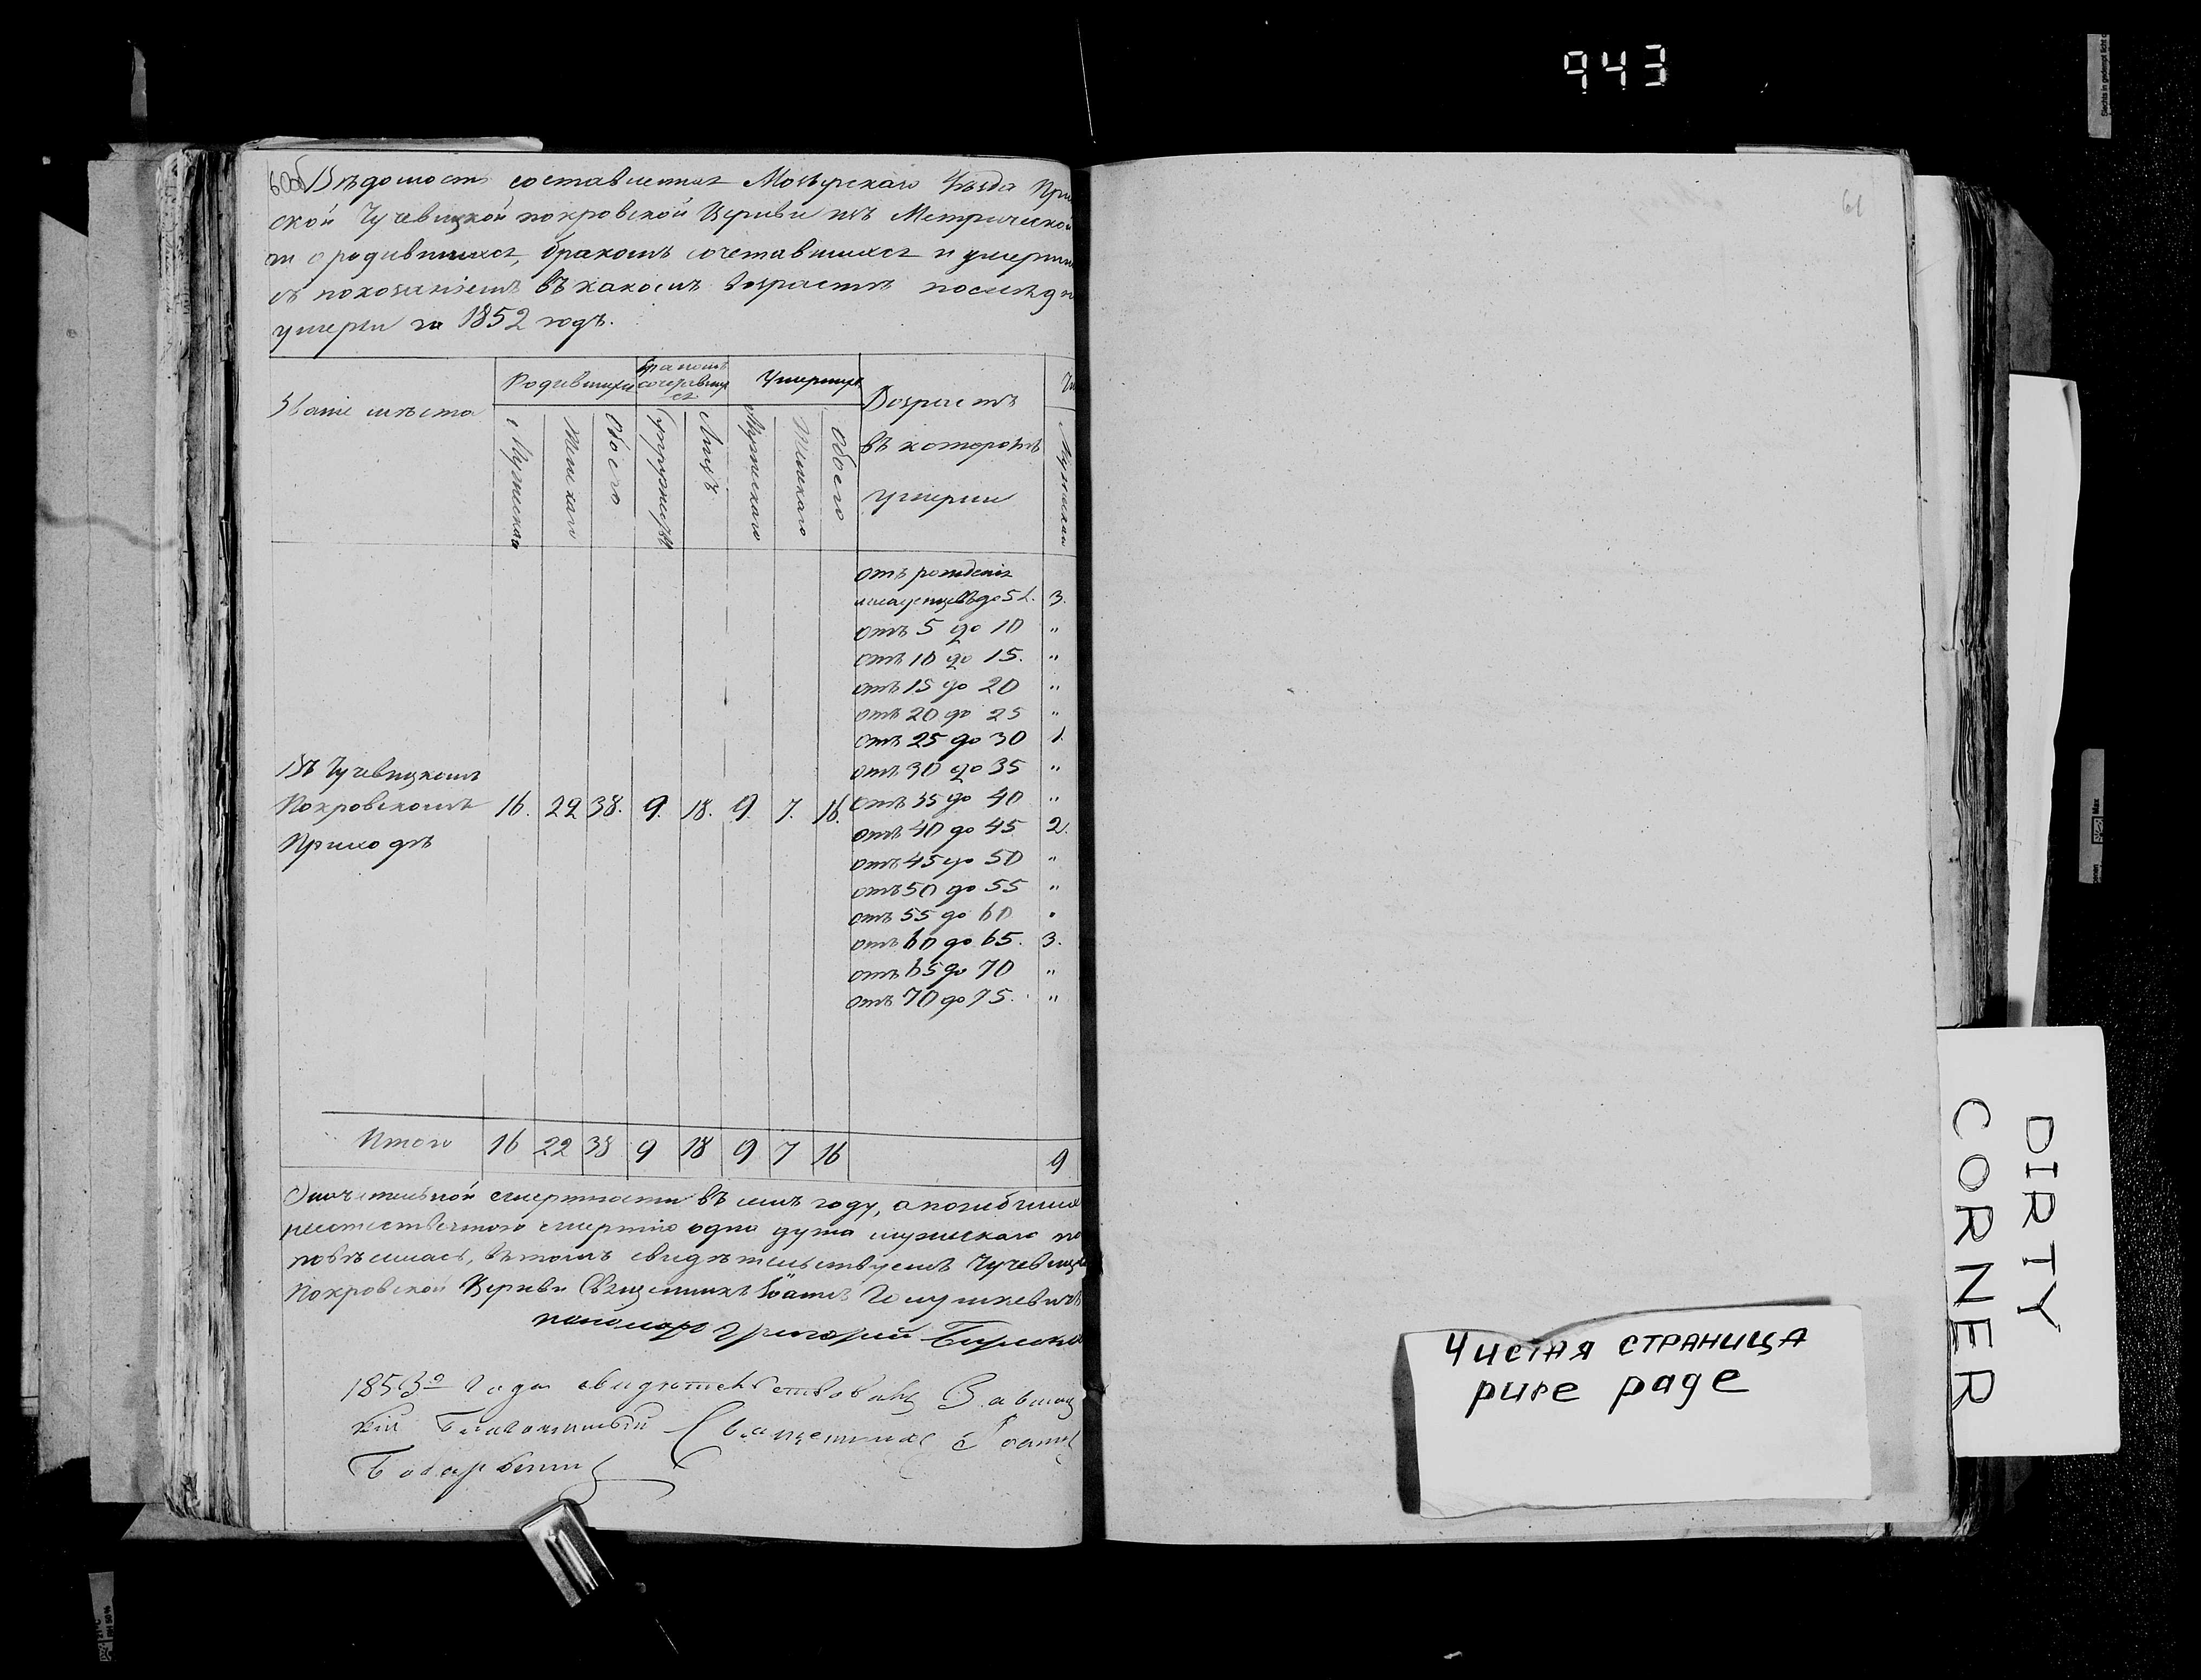 943
60об Вѣдомость составленная Мозырскаго Уѣзда При
ской Чучевицкой покровской Церкви изъ Метрической
о родившихся, бракомъ сочетавшихся и умерш
съ показаніемъ въ какомъ возрастѣ послѣдн
умерли за 1852 годъ.
Званіе мѣста
Родившихся
Бракомъ сочетавших
ся
Умершихъ
Возрастъ
въ которомъ
умерли
Мужескаго
Женскаго
Обоего
Супружествъ
Лицъ
Мужескаго
Женскаго
Обоего
Мужескаго
отъ рожденія
младенцевъ до 5 л. 3.
отъ 5 до 10 "
отъ 10 до 15. "
отъ 15 до 20 "
отъ 20 до 25 "
отъ 25 до 30 1.
отъ 30 до 35 "
отъ 35 до 40 "
отъ 40 до 45 2.
отъ 45 до 50 "
отъ 50 до 55 "
отъ 55 до 60 "
отъ 60 до 65. 3.
отъ 65 до 70 "
отъ 70 до 75. "
Въ Чучевицкомъ
Покровскомъ 16. 22 38. 9. 18. 9. 7. 16.
Приходѣ
Итого 16 22 38 9 18 9 7 16 9
смертности въ семъ году, а погибши
смертію одна душа мужескаго по
повѣсилась, въ томъ свидѣтельствуемъ Чучевицк
Покровской Церкви Священникъ Іоаннъ Гомушкевичъ
пономарь Григорій
1853го Года свидѣтельствовалъ
кій Благочинный Священникъ Іоаннъ
61
DIRTY
CORNER
Чистая страница
pure page